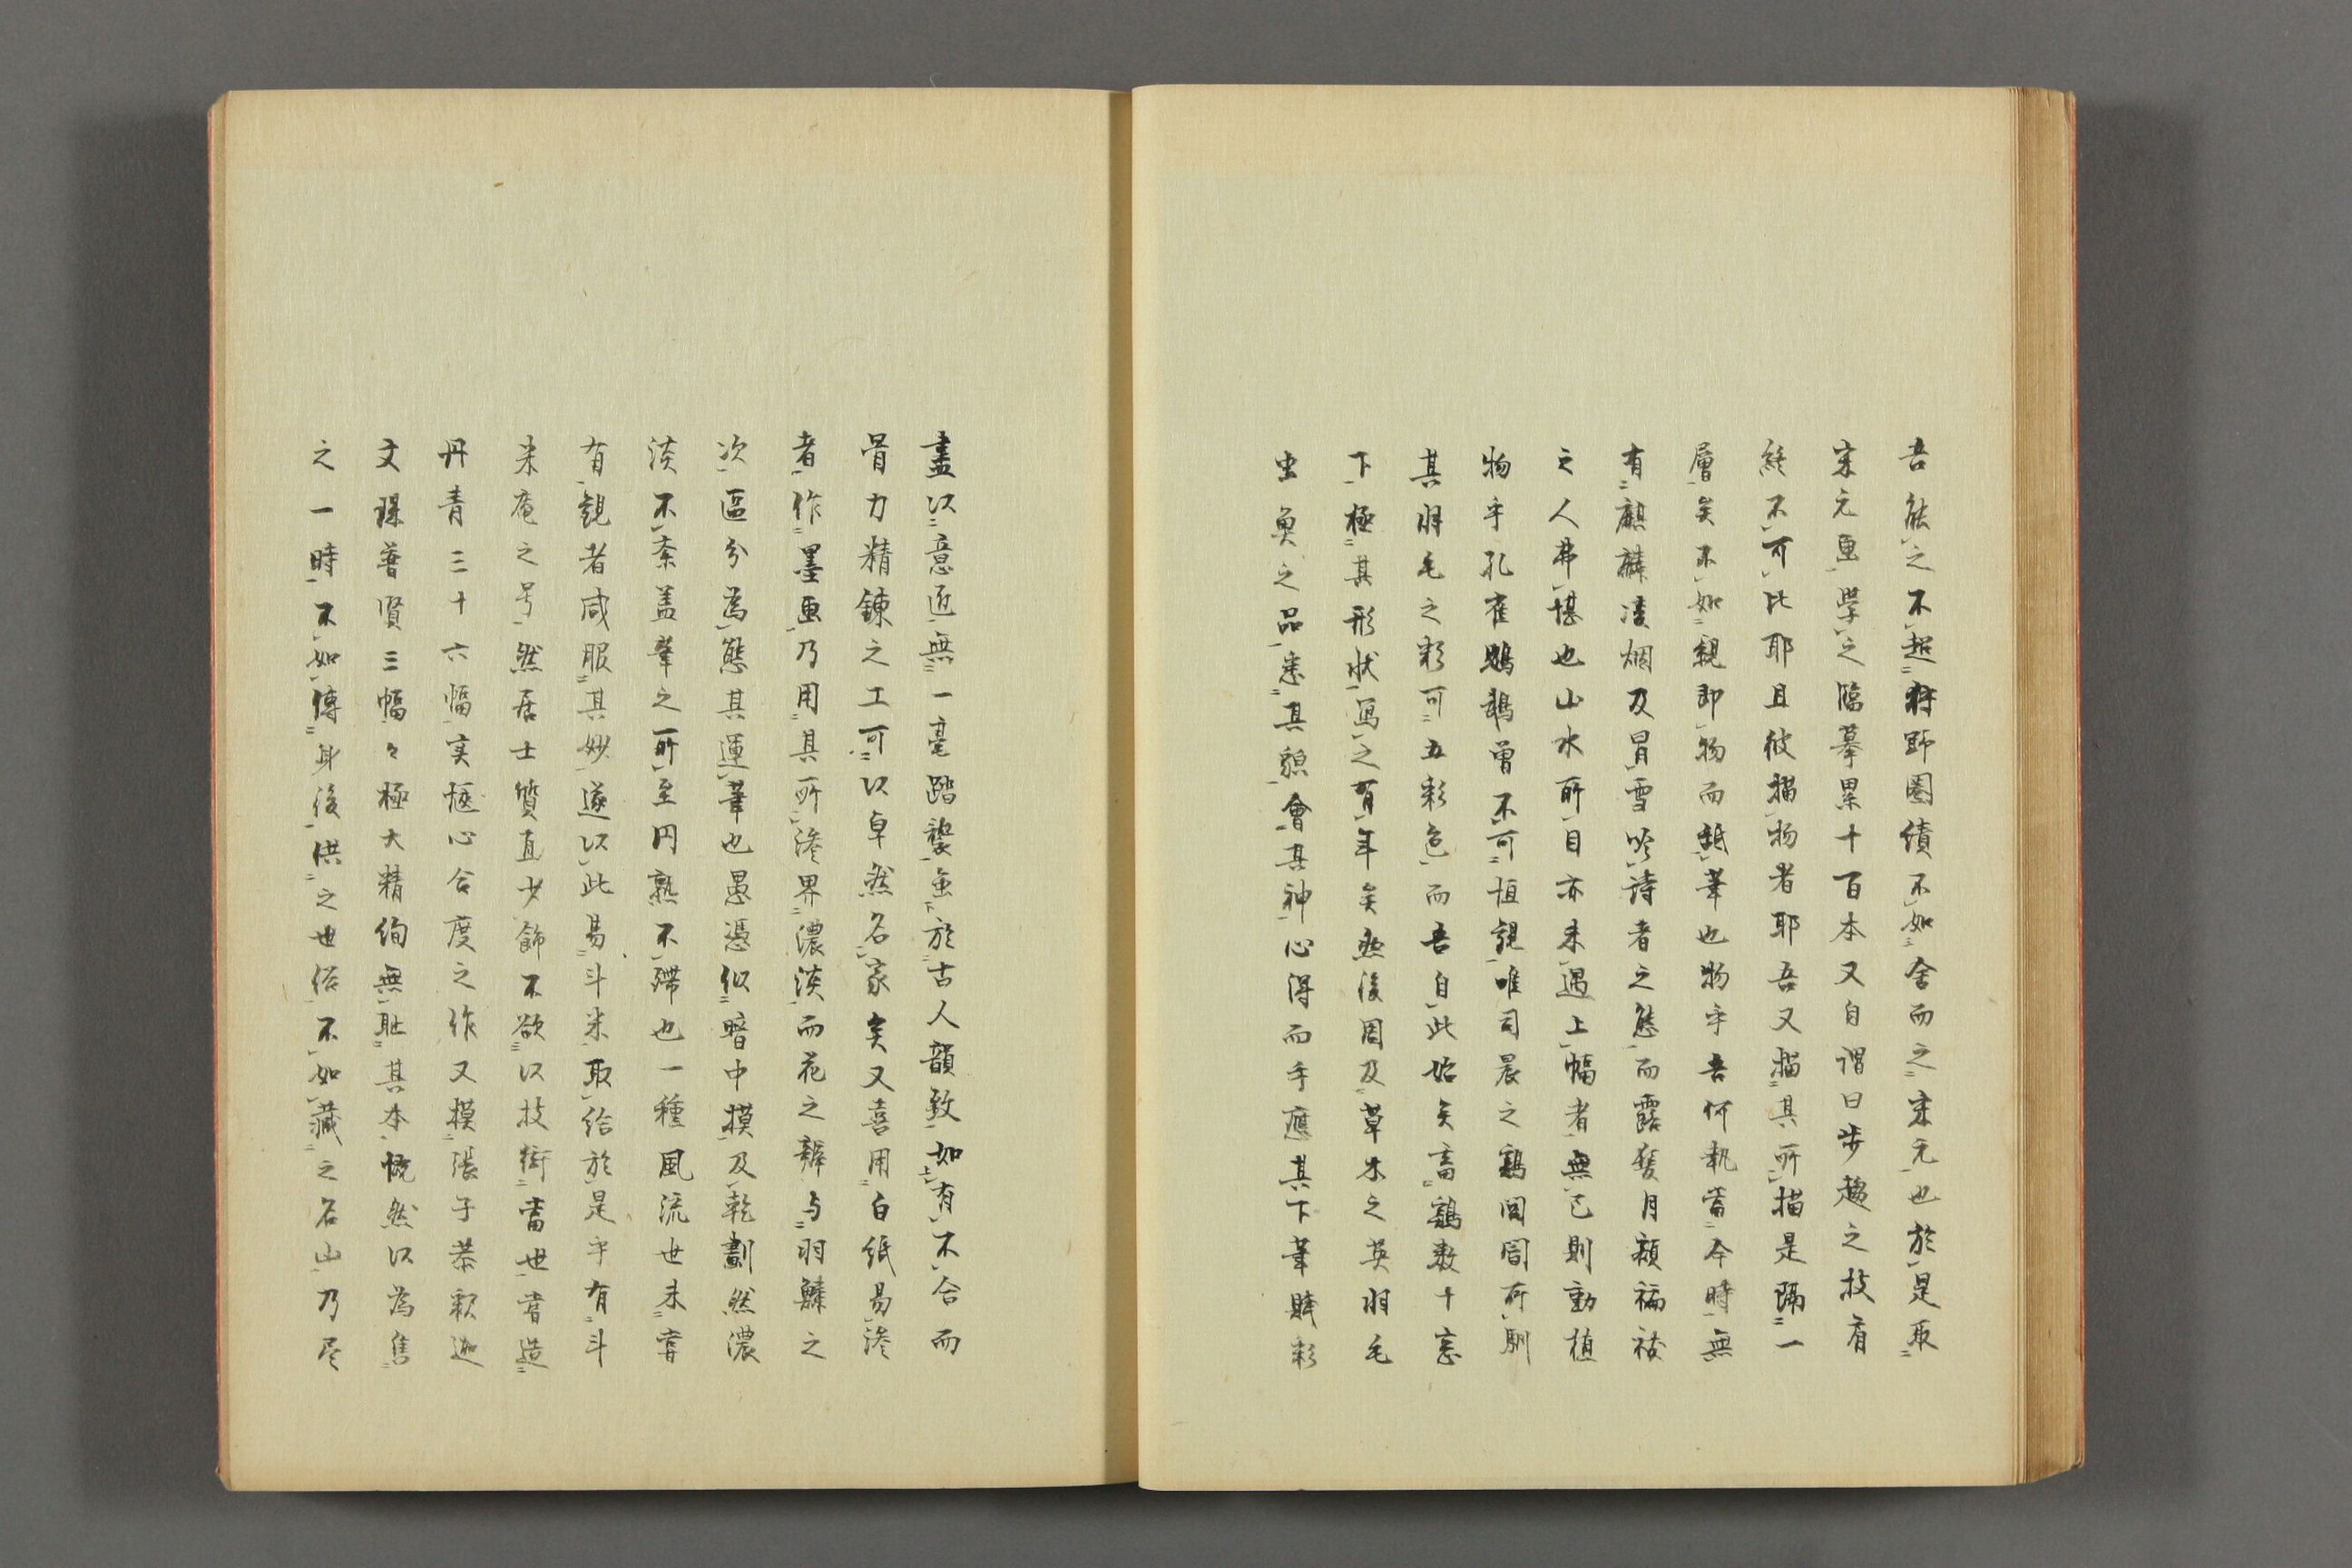 吾能之不超狩野圏繢不如舍而之宋元也於是取
宋元画学之臨摹累十百本又自謂曰步趨之技有
終不可比耶且彼描物者耶吾又描其所描是隔一
層矣不如親即物而舐筆也物乎吾何執当今時無
有麒麟凌烟及冒雪吟詩者之態而露髪月額褊裱
之人弗堪也山水所目亦未遇上幅者無已則動植
物乎孔雀鸚鵡曽不可恒観唯司晨之鶏閭閻所馴
其羽毛之彩可五彩色而吾自此始矣畜鶏数十窓
下極其形状写之有年矣然後周及草木之英羽毛
虫魚之品悉其貌会其神心得而手応其下筆賦彩
盡以意匠無一毫踏襲虽於古人韻致如有不合而
骨力精錬之工可以卓然名家矣又喜用白紙易滲
者作墨画乃用其所滲界濃淡而花之辨与羽鱗之
次区分為態其運筆也愚憑似暗中摸及乾劃然濃
淡不紊盖筆之所至円熟不滞也一種風流世未甞
有観者咸服其妙遂以此易斗米取給於是乎有斗
米庵之号然居士質直少飾不欲以技衒当世甞造
丹青三十六幅実愜心合度之作又摸張子恭釈迦
文殊普賢三幅々極大精絢無耻其本慨然以為售
之一時不如伝身後供之世俗不如蔵之名山乃尽